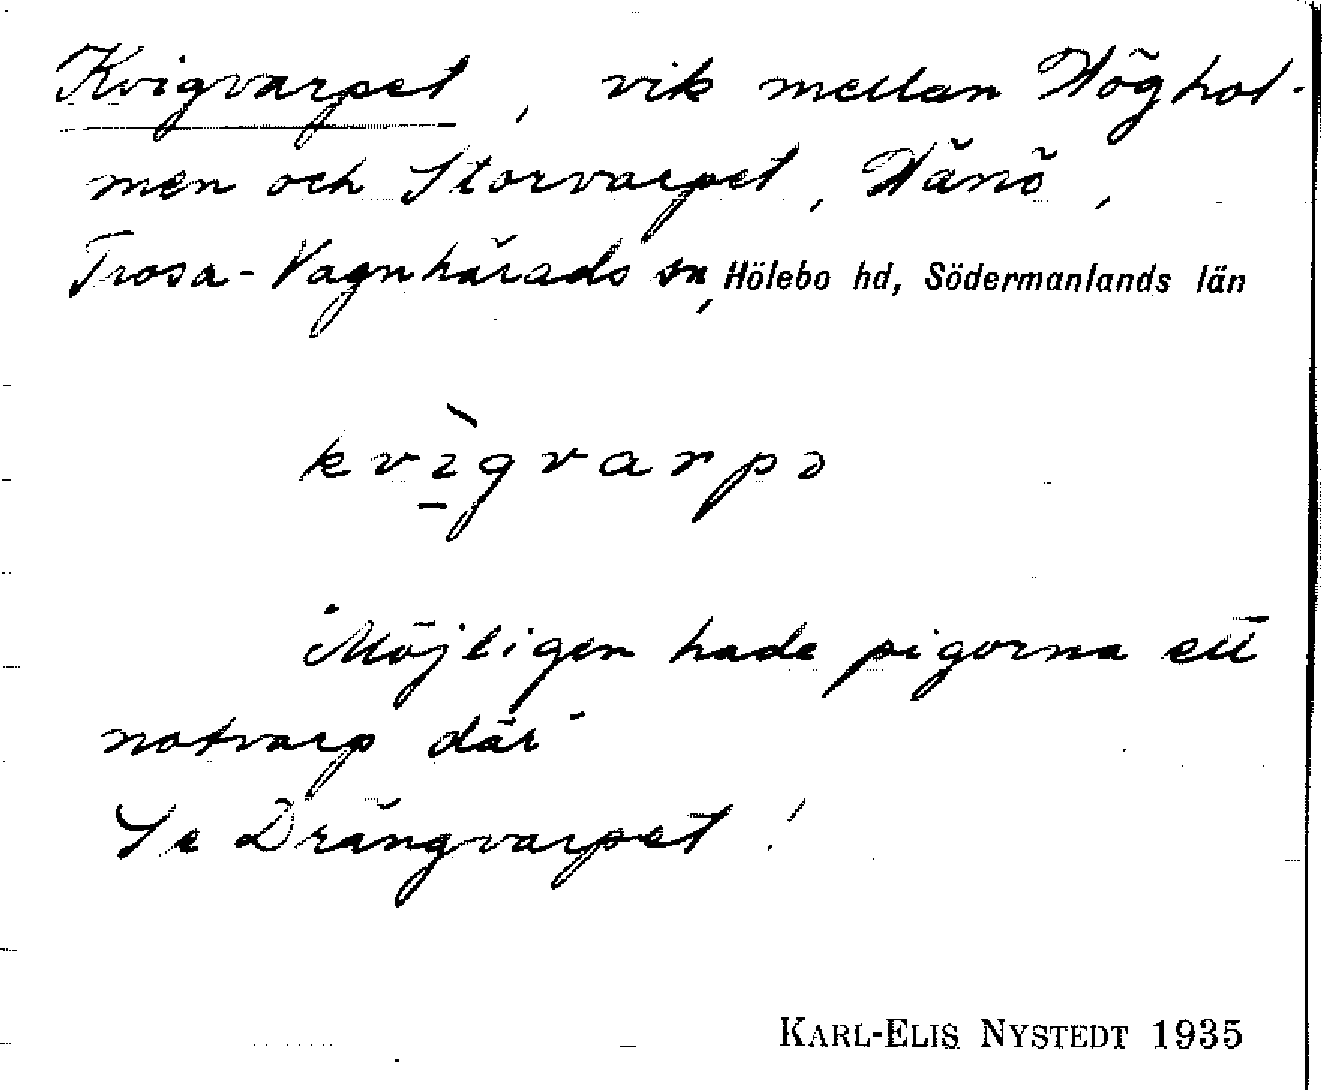 Kvigvarpet, vik mellan Höghol-
men och Storvarpet, Hänö,
Trosa-Vagnhärads sn, Hölebo hd, Södermanlands län
kvìgvarpə
"Möjligen hade pigorna ett
notvarp där"
Se Drängvarpet!
KARL-ELIS NYSTEDT 1935